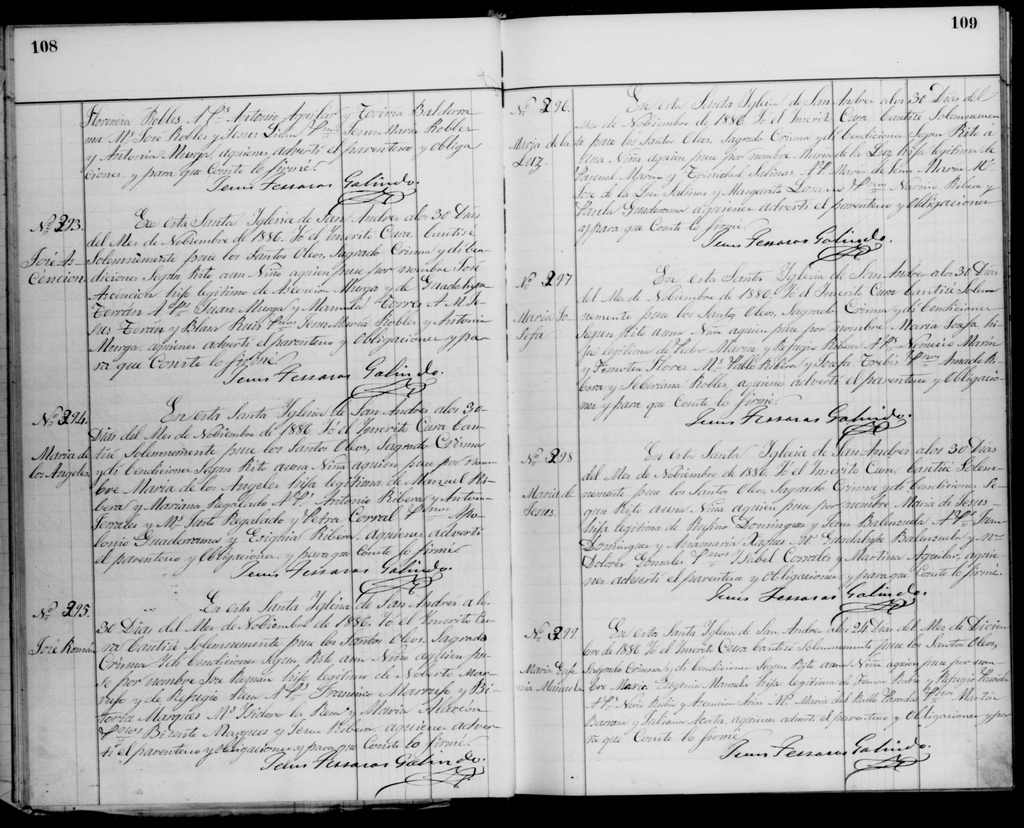 108
Florencia Robles A. Ps. Antonio Aguilar y Teresa Balderra-
ma Ms. José Robles y Jesus Pms. Jesus Maria Robles
y Antonia Murga, aquienes adverti el parentesco y obliga
ciones, y para que Conste lo firmé.
Jesus Terrazas Galindo.
No. 293.
José As-
cencion
En esta Santa Yglesia de San Andres alos 30 Dias
del Mes de Nobiembre de 1886. Yo el Ynscrito Cura bautisé
Solennemente puse los Santos Oleos, Sagrado Crisma y di ben
diciones Segun Rito aun Niño aquien puse por nombre José
Ascencion hijo legitimo de Ascencion Murga y de Guadalupe
Terran A. Ps. Juan Murga y Manuela Torres A. M. Je-
sus Teran y Blasa Pms. Jesus Maria Robles y Antonia
Murga aquienes adverti el parentesco y Obligaciones y pa-
ra que Conste lo firmé
Jesus Terrazas Galindo.
No. 294.
Maria de
los Angeles
En esta Santa Yglesia de San Andres alos 30
Dias del Mes de Nobiembre de 1886 Yo el Ynscrito Cura bau-
tisé Solennemente puse los Santos Oleos, Sagrado Crisma
y di bendiciones Segun Rito auna Niña aquien puse por nom-
bre Maria de los Angeles hija legitima de Manuel Ri-
bera y Mariana Regalado A. Ps. Antonio Ribera y Antonia
Corrales y Ms. Justo Regalado y Petra Corral Pms. Apo-
lonio Guaderrama y Ribera, aquienes adverti
el parentesco y Obligaciones, y para que Conste lo firmé
Jesus Terrazas Galindo.
No. 295.
José Roman
En esta Santa Yglesia de San Andrés a los
30 Dias del Mes de Nobiembre de 1886. Yo el Ynscrito Cu-
ra bautisé Solennemente puse los Santos Oleos, Sagrado
Crisma y di bendiciones Segun Rito aun Niño aquien pu-
se por nombre José Roman hijo legitimo de Roberto Mar-
rufo y de Refugio A. Ps. Francisco Marrufo y Bi-
toria Marques Ms. Ysidoro y Maria Alarcon
Pmos. Marques y Jesus Ribera, aquienes adver-
ti el parentesco y obligaciones y para que Conste lo firmé.
Jesus Terrazas Galindo.
109
No. 296.
Maria de la
Luz.
En esta Santa Yglesia de San Andres alos 30 Dias del
Mes de Nobiembre de 1886. Yo el Ynscrito Cura bautisé Solennemen-
te puse los Santos Oleos, Sagrado Crisma y di bendiciones Segun Rito a
una Niña aquien puse por nombre Maria de la Luz hija legitima de
Pascual Marin y Trinidad Salinas A. P. Marin
José de la Luz Salinas y Margarita Pms. Ribera y
Paula Guaderrama aquienes adverti el parentesco y Obligaciones
y para que Conste lo firmé
Jesus Terrazas Galindo.
No. 297
Maria Jo-
sefa
En esta Santa Yglesia de San Andres alos 30 Dias
del Mes de Nobiembre de 1886. Yo el Ynscrito Cura bautisé Solen-
nemente puse los Santos Oleos, Sagrado Crisma y di bendiciones
Segun Rito auna Niña aquien puse por nombre Maria Josefa hi-
ja legitima de Pedro Marin y Refugio Ribera A. Ps. Marin
y Flores Ms. Pablo Ribera y Josefa Pms. Ri-
bera y Robles, aquienes adverti el parentesco y Obligacio-
nes y para que Conste lo firmé.
Jesus Terrazas Galindo.
No. 298
Maria de
Jesus.
En esta Santa Yglesia de San Andres alos 30 Dias
del Mes de Nobiembre de 1886. Yo el Ynscrito Cura, bautisé Solen-
nemente puse los Santos Oleos, Sagrado Crisma y di bendiciones Se-
gun Rito auna Niña aquien puse por nombre Maria de Jesus
hija legitima de Rufino Dominguez y Jesus Balenzuela A. Ps. Juan
Dominguez y Ms. Guadalupe Balenzuela y
Dolores Gonzales Pmos. Ysabel Corrales y Martina Aguilar, aquie-
nes adverti el parentesco y Obligaciones y para que Conste lo firmé.
Jesus Terrazas Galindo.
No. 299
Maria Euge-
nia Manuela
En esta Santa Yglesia de San Andres alos 24 Dias del Mes de Diciem-
bre de 1886 Yo el Ynscrito Cura bautisé Solennemente puse los Santos Oleos,
Sagrado Crisma y di bendiciones Segun Rito auna Niña aquien puse por nom-
bre Maria Eugenia Manuela hija legitima de y Refugio
A. Ps. Rubio y Ms. Maria Pms.
y Juliana aquienes adverti el parentesco y Obligaciones y pa-
ra que Conste lo firmé
Jesus Terrazas Galindo.